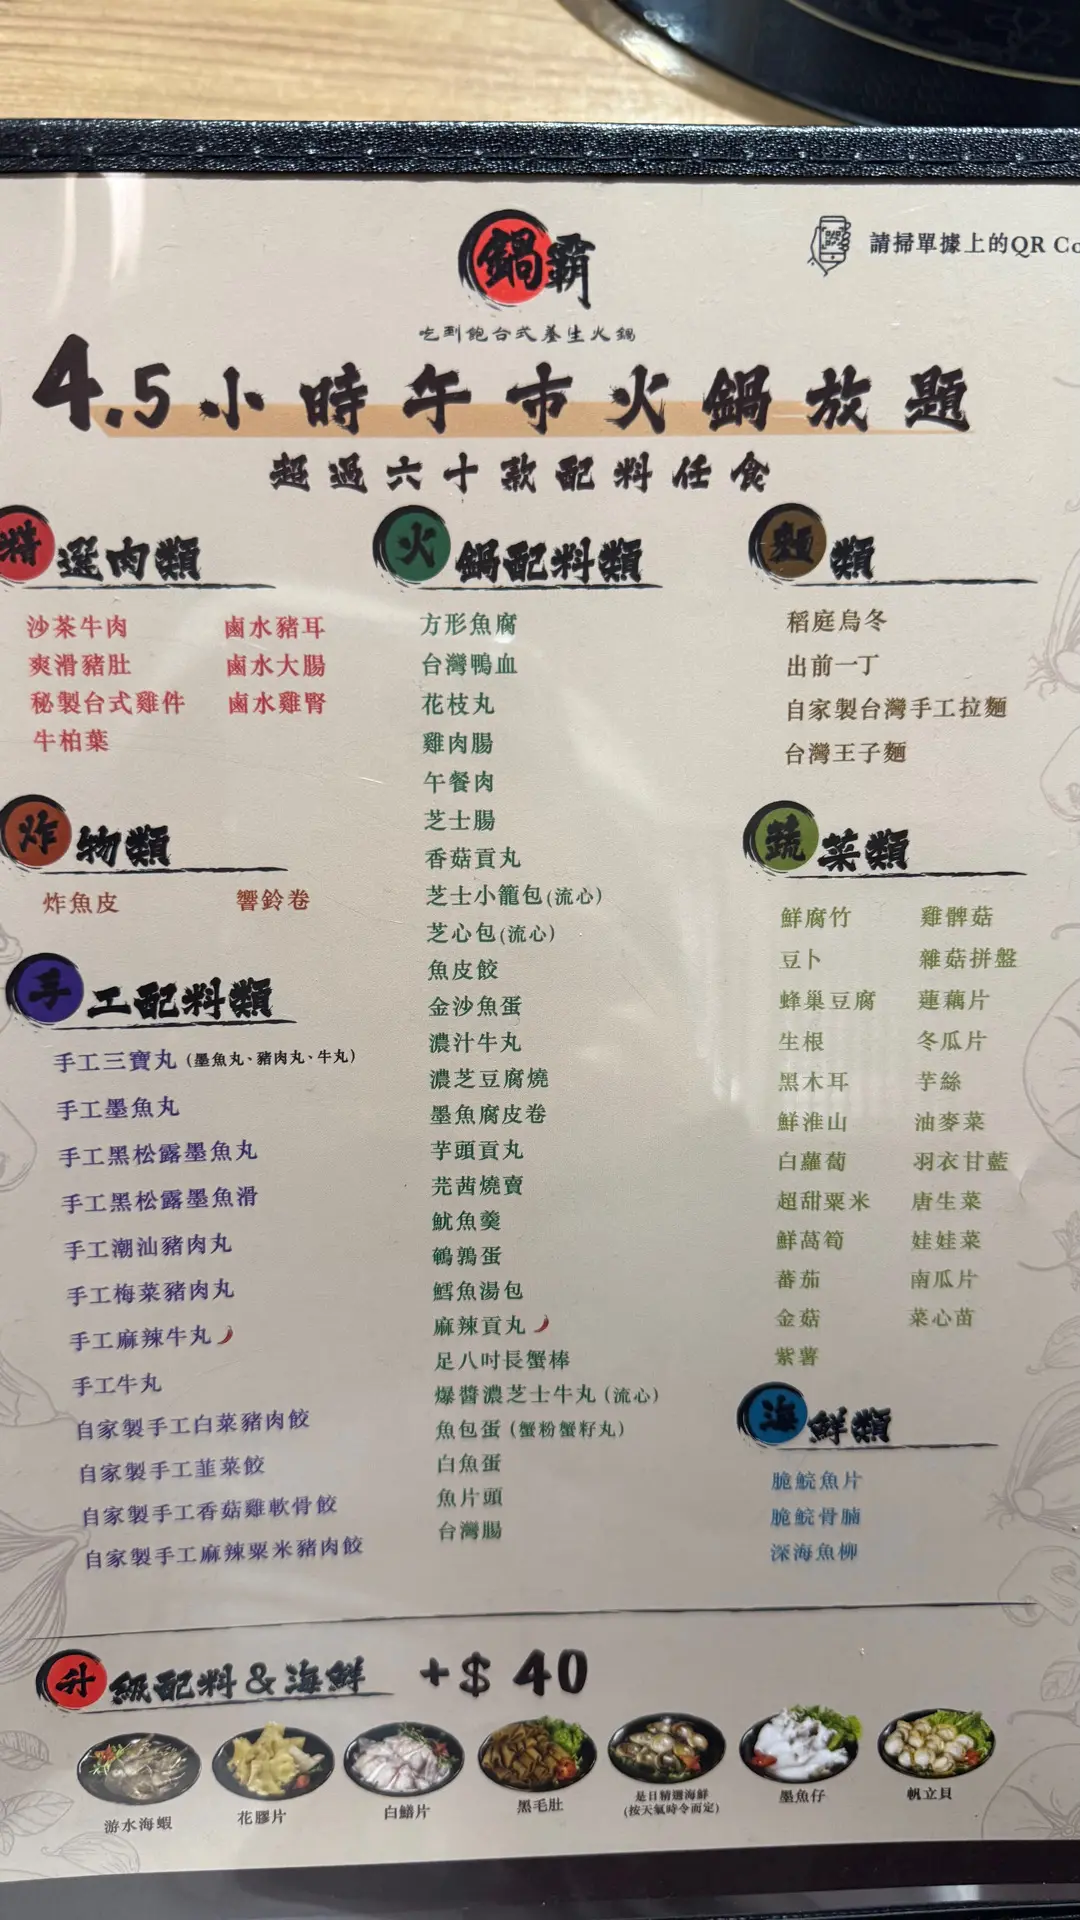 鍋霸
請掃單據上的QR Co
吃到飽台式養生火鍋
4.5小時午市火鍋放題
超過六十款配料任食
精選肉類
沙茶牛肉 鹵水豬耳
爽滑豬肚 鹵水大腸
秘製台式雞件 鹵水雞腎
牛柏葉
炸物類
炸魚皮 響鈴卷
手工配料類
手工三寶丸(墨魚丸、豬肉丸、牛丸)
手工墨魚丸
手工黑松露墨魚丸
手工黑松露墨魚滑
手工潮汕豬肉丸
手工梅菜豬肉丸
手工麻辣牛丸
手工牛丸
自家製手工白菜豬肉餃
自家製手工韮菜餃
自家製手工香菇雞軟骨餃
自家製手工麻辣粟米豬肉餃
火鍋配料類
方形魚腐
台灣鴨血
花枝丸
雞肉腸
午餐肉
芝士腸
香菇貢丸
芝士小籠包(流心)
芝心包(流心)
魚皮餃
金沙魚蛋
濃汁牛丸
濃芝豆腐燒
墨魚腐皮卷
芋頭貢丸
芫茜燒賣
魷魚羹
鵪鶉蛋
鱈魚湯包
麻辣貢丸
足八吋長蟹棒
爆醬濃芝士牛丸(流心)
魚包蛋(蟹粉蟹籽丸)
白魚蛋
魚片頭
台灣腸
麵類
稻庭烏冬
出前一丁
自家製台灣手工拉麵
台灣王子麵
蔬菜類
鮮腐竹 雞髀菇
豆卜 雜菇拼盤
蜂巢豆腐 蓮藕片
生根 冬瓜片
黑木耳 芋絲
鮮淮山 油麥菜
白蘿蔔 羽衣甘藍
超甜粟米 唐生菜
鮮萵筍 娃娃菜
蕃茄 南瓜片
金菇 菜心苗
紫薯
海鮮類
脆鯇魚片
脆鯇骨腩
深海魚柳
升級配料&海鮮 +$40
游水海蝦
花膠片
白鱔片
黑毛肚
是日精選海鮮
(按天氣時令而定)
墨魚仔
帆立貝